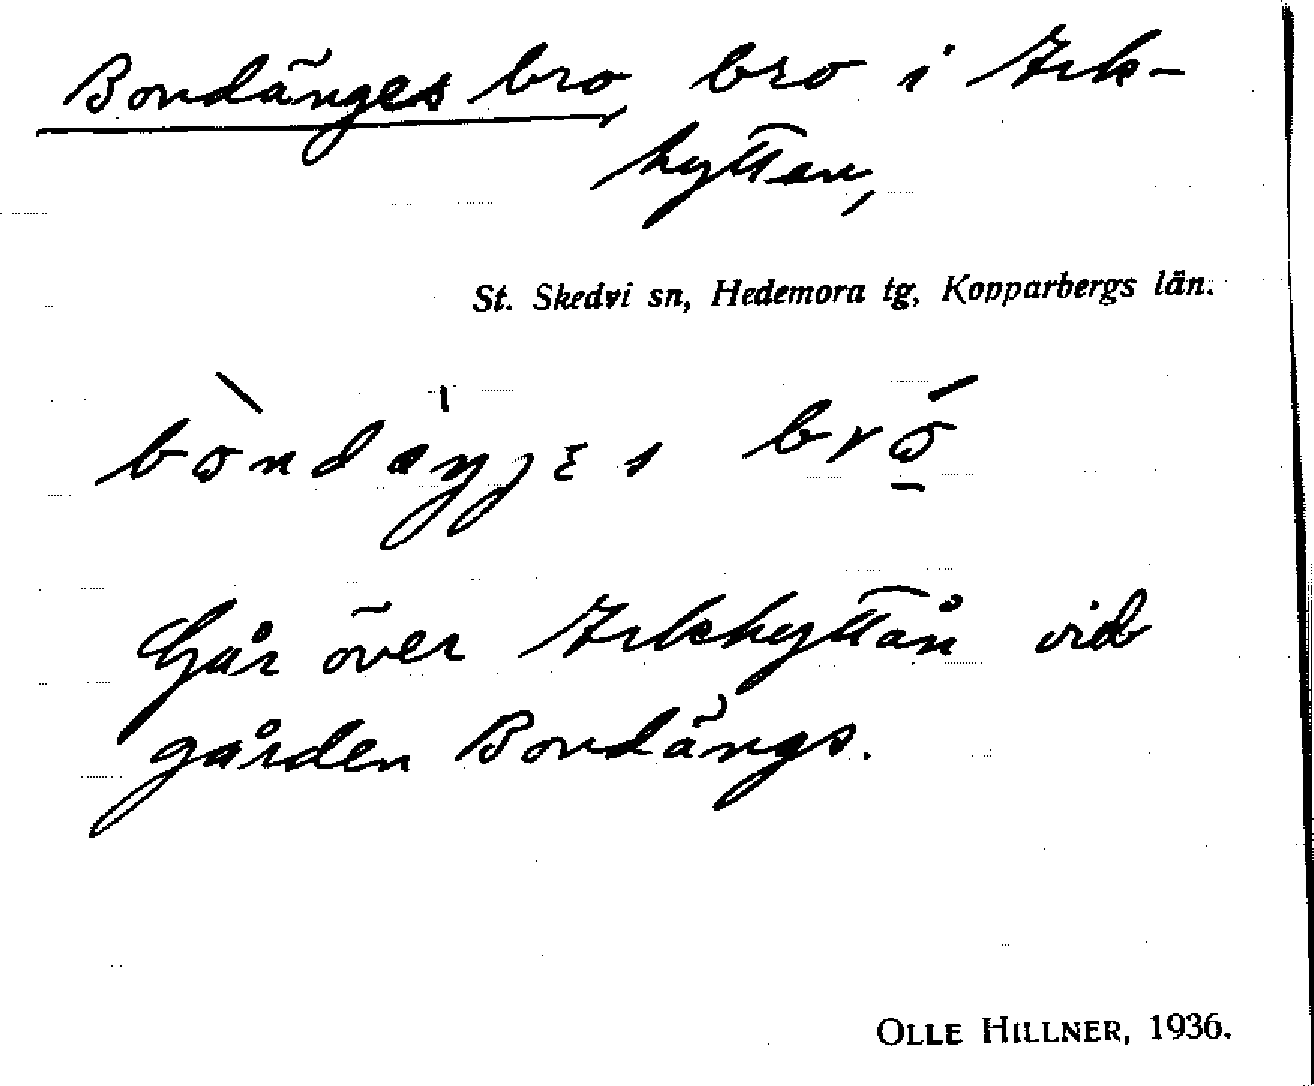 Bondänges bro, bro i Ark-
hyttan,
St. Skedvi sn, Hedemora tg, Kopparbergs län.
Går över Arkhyttån vid
gården Bondängs.
OLLE HILLNER, 1936.